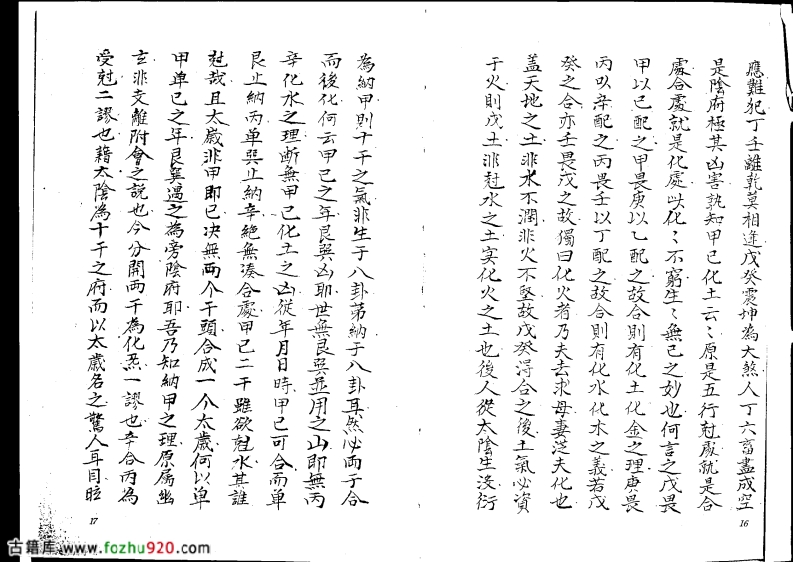 應難犯丁壬離乾莫相逢戊癸震坤為大煞人丁六畜盡成空
是陰府極其凶害孰知甲已化土云〻原是五行尅處就是合
處合處就是化處以化〻不窮生〻無已之妙也何言之戊畏
甲以已配之甲畏庚以乙配之故合則有化土化金之理庚畏
丙以辛配之丙畏壬以丁配之故合則有化水化木之義若戊
癸之合亦壬畏戊之故獨曰化火者乃夫去求母妻從夫化也
蓋天地之土非水不潤非火不堅故戊癸得合之後土氣必資
于火則戊土非尅水之土实化火之土也後人從太陰生沒衍
16
為納甲則十干之氣非生于八卦苐納于八卦耳然必兩于合
而後化何云甲已之年艮巽凶耶世無艮巽並用之山即無丙
辛化水之理断無甲已化土之凶從年月日時甲已可合而单
艮止納丙单巽止納辛絕無湊合處甲已二干雖欲尅水其誰
尅哉且太歲非甲即已决無两个干頭合成一个太歲何以单
甲单已之年艮巽遇之為旁陰府耶吾乃知納甲之理原属幽
玄非支離附會之説也今分開兩干為化炁一謬也辛合丙為
受尅二謬也籍太陰為十干之府而以太歲名之驚人耳目眩
17
古籍库 www.fozhu920.com